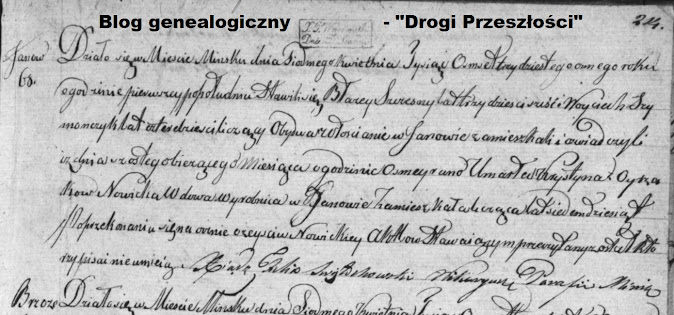 Blog genealogiczny - "Drogi Przeszłości"
214.
Janow Działo się w Mieście Minsku dnia Siodmego kwietnia Tysiąc Osmset trzydziestego osmego roku
63. o godzinie pierwszy popołudniu Stawili się Błazey lat trzydziesci sześć Woyciech Szy
monczyk lat czterdziesci liczący Obydwa włościanie w Janowie zamieszkali i oświadczyli
iż dnia bierzącego Miesiąca o godzinie Osmey rano Umarła Krystyna z
kow Nowicka Wdowa wyrobnica w Janowie zamieszkała licząca lat siedmdziesiąt
Poprzekonaniu się naocznie o zeyściu Nowickiey Akt ten Stawaiącym przeczytany został któ
rzy pisać nieumieią Xiądz Wikaryusz Parafii
Brzoze Działo się w Mieście Minsku dnia Siodmego Kwietnia